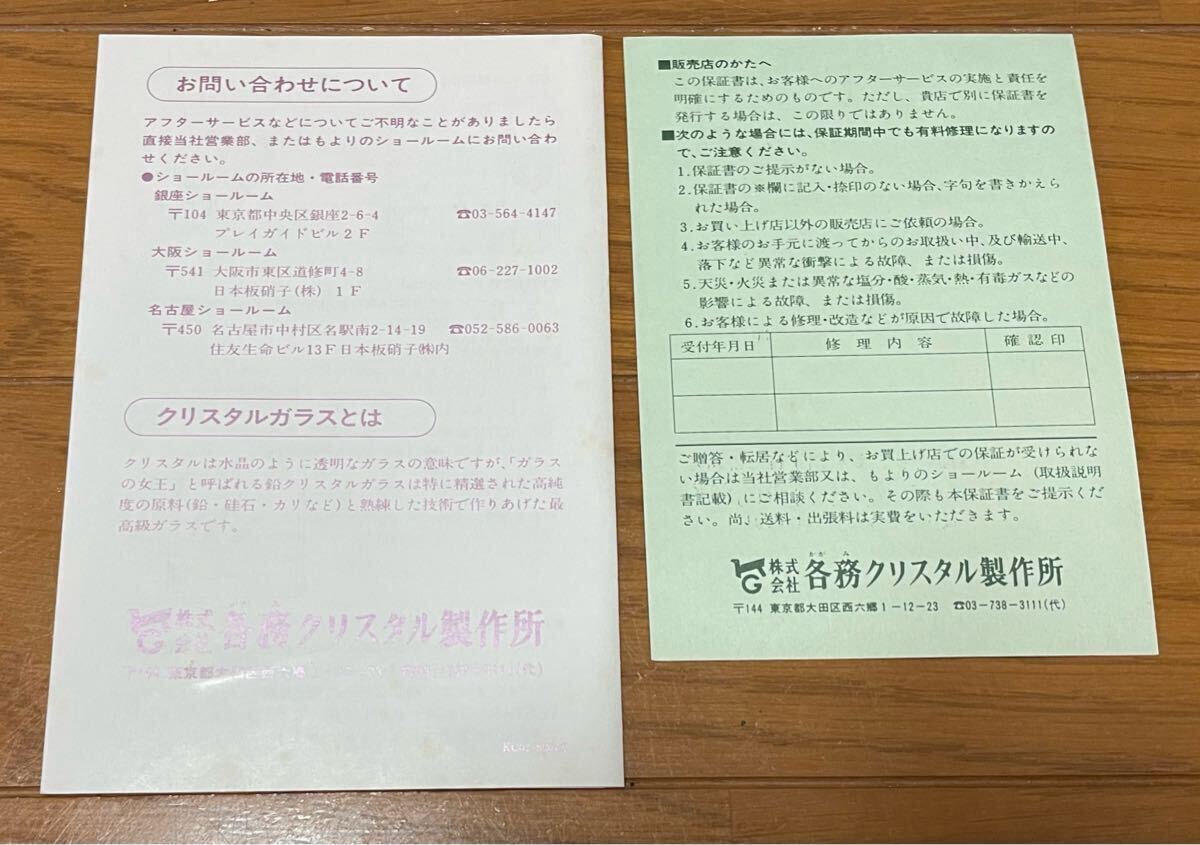 お問い合わせについて
アフターサービスなどについてご不明なことがありましたら
直接当社営業部、またはもよりのショールームにお問い合わ
せください。
●ショールームの所在地・電話番号
銀座ショールーム
〒104 東京都中央区銀座2-6-4 ☎03-564-4147
プレイガイドビル2F
大阪ショールーム
〒541 大阪市東区道修町4-8 ☎06-227-1002
日本板硝子(株) 1F
名古屋ショールーム
〒450 名古屋市中村区名駅南2-14-19 ☎052-586-0063
住友生命ビル13F日本板硝子㈱内
クリスタルガラスとは
クリスタルは水晶のように透明なガラスの意味ですが、「ガラス
の女王」と呼ばれる鉛クリスタルガラスは特に精選された高純
度の原料(鉛・硅石・カリなど)と熟練した技術で作りあげた最
高級ガラスです。
株式会社 各務クリスタル製作所
東京都大田区西六郷
■販売店のかたへ
この保証書は、お客様へのアフターサービスの実施と責任を
明確にするためのものです。ただし、貴店で別に保証書を
発行する場合は、この限りではありません。
■次のような場合には、保証期間中でも有料修理になりますの
で、ご注意ください。
1.保証書のご提示がない場合。
2.保証書の※欄に記入・捺印のない場合、字句を書きかえら
れた場合。
3.お買い上げ店以外の販売店にご依頼の場合。
4.お客様のお手元に渡ってからのお取扱い中、及び輸送中、
落下など異常な衝撃による故障、または損傷。
5.天災・火災または異常な塩分・酸・蒸気・熱・有毒ガスなどの
影響による故障、または損傷。
6.お客様による修理・改造などが原因で故障した場合。
受付年月日 修理内容 確認印
ご贈答・転居などにより、お買上げ店での保証が受けられな
い場合は当社営業部又は、もよりのショールーム(取扱説明
書記載)にご相談ください。その際も本保証書をご提示くだ
さい。尚、送料・出張料は実費をいただきます。
かがみ
株式会社 各務クリスタル製作所
〒144 東京都大田区西六郷1-12-23 ☎03-738-3111(代)